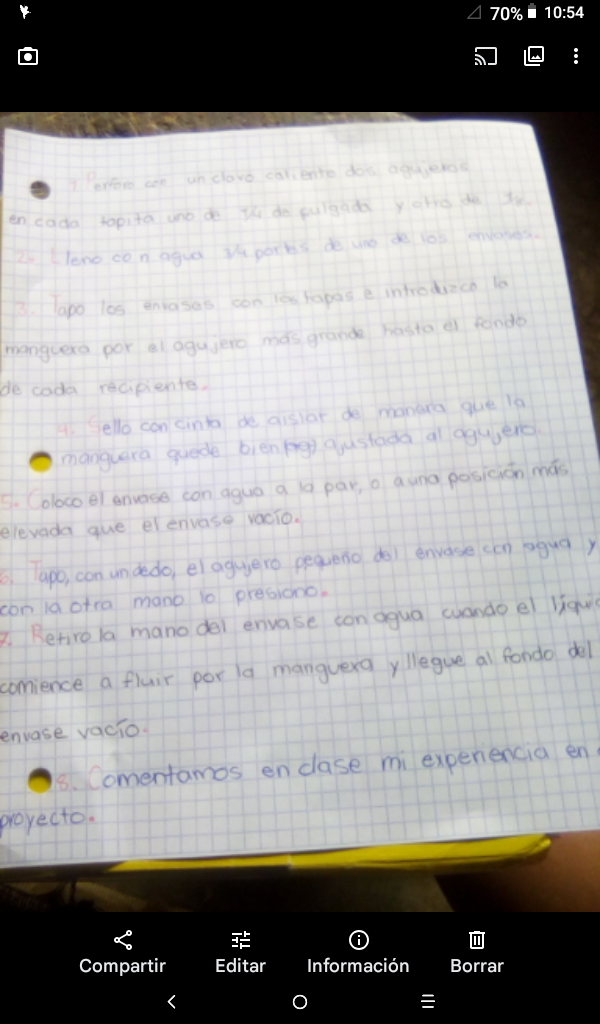 70% 10:54
1. Perforo con un clavo caliente dos agujeros
en cada tapita uno de 1/4 de pulgada y otro de
2. Lleno con agua 3/4 partes de uno de los envases.
3. Tapo los envases con las tapas e introduzco la
manguera por el agujero más grande hasta el fondo
de cada recipiente.
4. Sello con cinta de aislar de manera que la
manguera quede bien ajustada al agujero.
5. Coloco el envase con agua a la par, o a una posición más
elevada que el envase vacío.
6. Tapo, con un dedo, el agujero pequeño del envase con agua y
con la otra mano lo presiono.
7. Retiro la mano del envase con agua cuando el
comience a fluir por la manguera y llegue al fondo del
envase vacío.
8. Comentamos en clase mi experiencia en
proyecto.
Compartir Editar Información Borrar